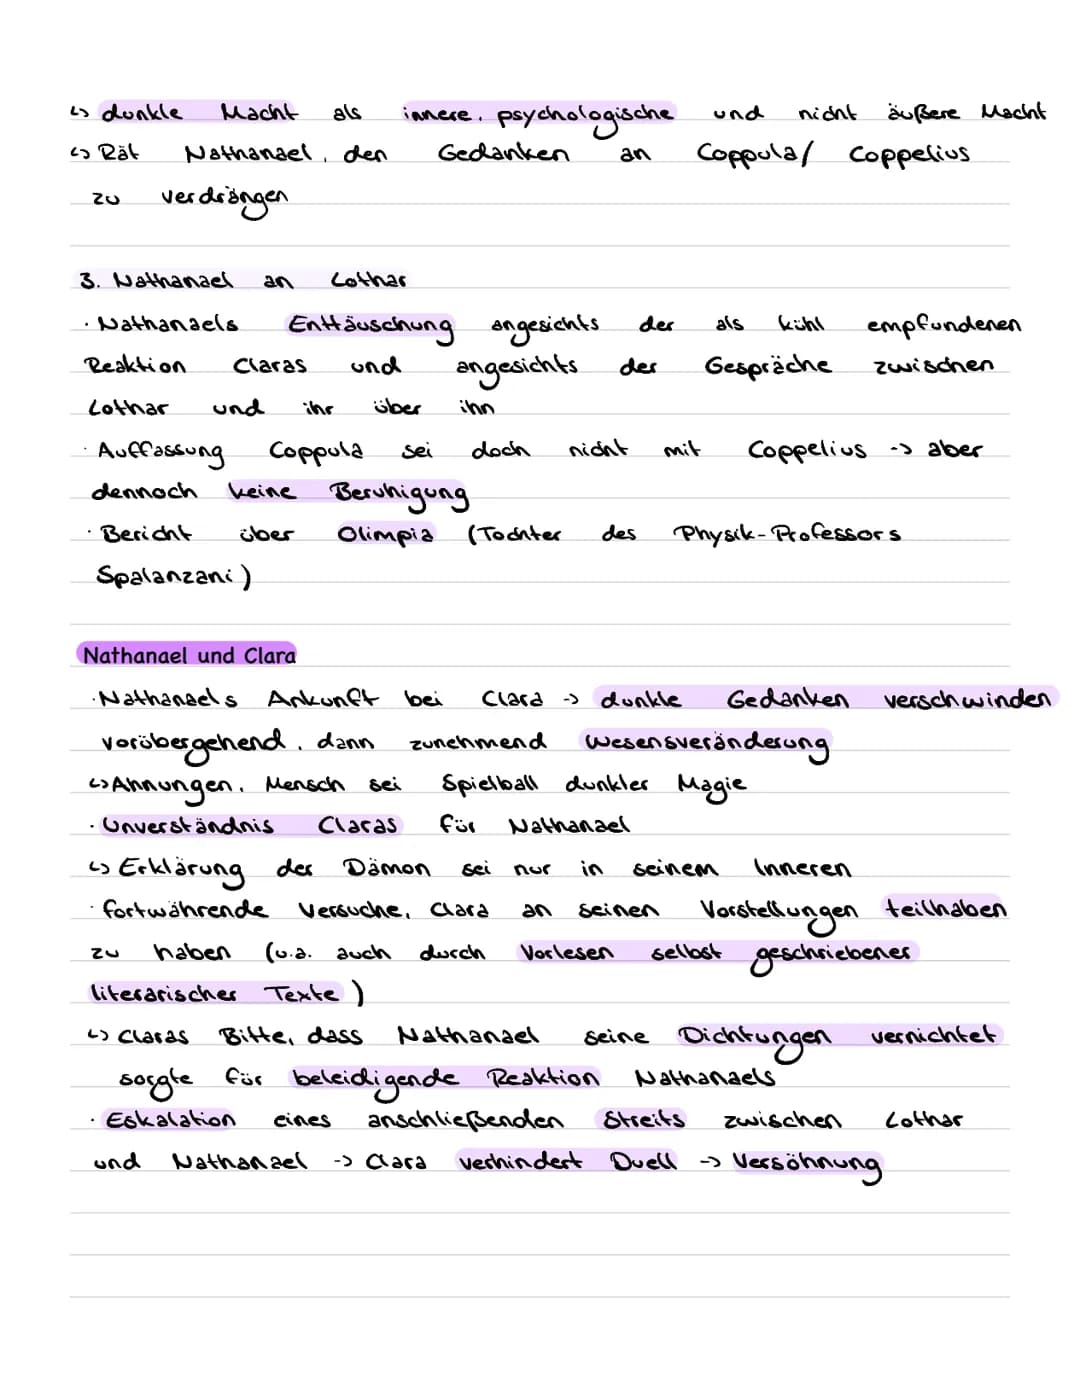 ↳ dunkle Macht als innere, psychologische und nicht äußere Macht
↳ Rät Nathanael, den Gedanken an Coppula/ Coppelius
zu verdrängen
3. Nathanael an Lothar
· Nathanaels Enttäuschung angesichts der als kühl empfundenen
Reaktion Claras und angesichts der Gespräche zwischen
Lothar und ihr über ihn
· Auffassung Coppula sei doch nicht mit Coppelius -> aber
dennoch keine Beruhigung
· Bericht über Olimpia (Tochter des Physik-Professors
Spalanzani)
Nathanael und Clara
· Nathanaels Ankunft bei Clara -> dunkle Gedanken verschwinden
vorübergehend, dann zunehmend Wesensveränderung
↳ Ahnungen, Mensch sei Spielball dunkler Magie
· Unverständnis Claras für Nathanael
↳ Erklärung der Dämon sei nur in seinem Inneren
· fortwährende Versuche, Clara an seinen Vorstellungen teilhaben
zu haben (u.a. auch durch Vorlesen selbst geschriebener
literarischer Texte)
↳ Claras Bitte, dass Nathanael seine Dichtungen vernichtet
sorgte für beleidigende Reaktion Nathanaels
· Eskalation eines anschließenden Streits zwischen Lothar
und Nathanael -> Clara verhindert Duell -> Versöhnung